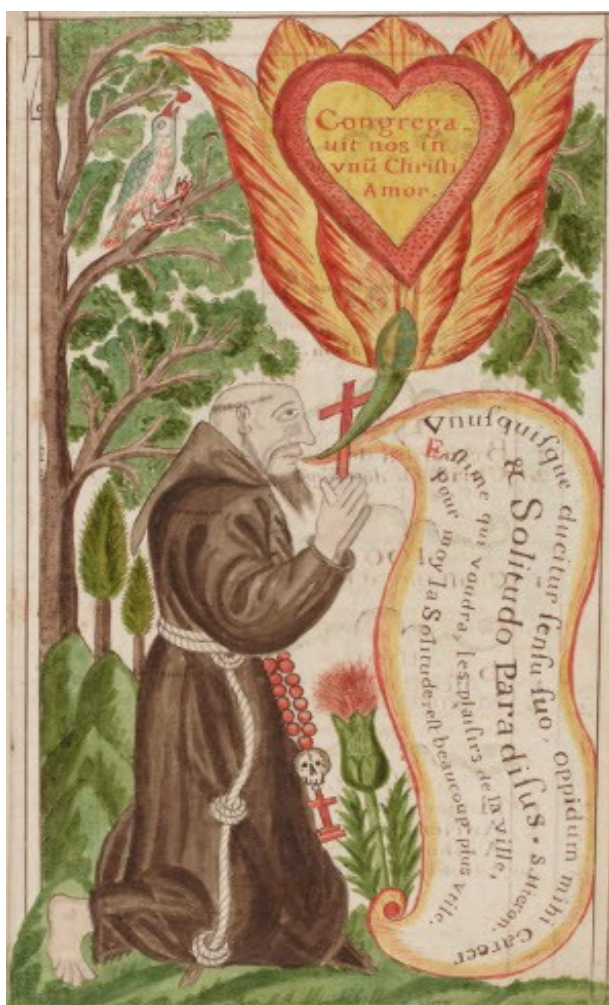 Congrega-
uit nos in
vnũ Christi
Amor.
Vnusquisque ducitur sensu suo, oppidum mihi Carcer
& Solitudo Paradisus. S. Hieron.
Estime qui voudra, les plaisirs de la Ville,
pour moy la Solitude, est beaucoup plus vtile.